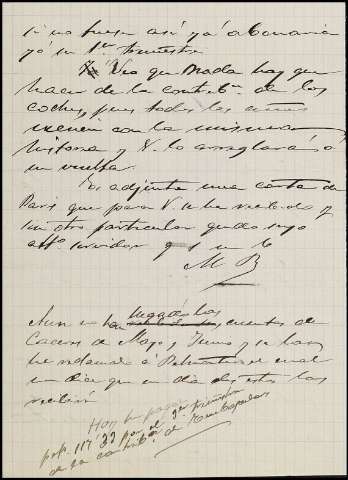 si no fuese así ya abonaria
yo un 1er trimestre
Veo que Nada hay que
hacer de la contribn. de los
coches, pues todos los años
vienen con la misma
historia y V. lo arreglará á
su vuelta.
Os adjunto una carta de
Paris que para V. he recibido y
sin otro particular quedo suyo
affº. servidor q s m b
M B
Aun no han llegado las cuentas de
Caceres de Mayo y Junio y se han
reclamado á
un dia que un dia de estos las
recibiré
Hoy he pagado
pts. 117'33 por el 3er trimestre
de la contribn. de